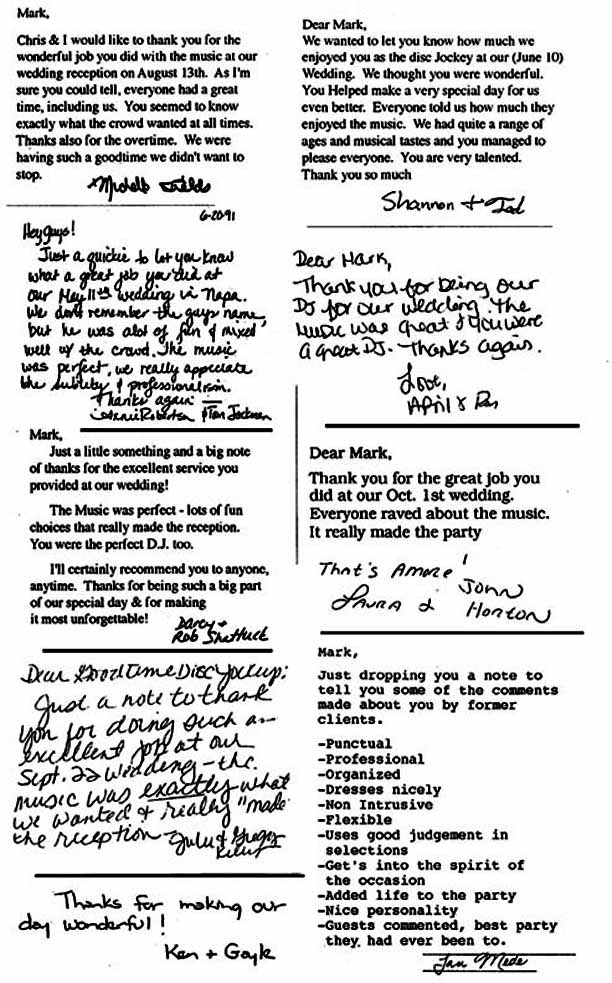 Mark,
Chris & I would like to thank you for the
wonderful job you did with the music at our
wedding reception on August 13th. As I'm
sure you could tell, everyone had a great
time, including us. You seemed to know
exactly what the crowd wanted at all times.
Thanks also for the overtime. We were
having such a goodtime we didn't want to
stop.
6-20-91
Hey guys!
Just a quickie to let you know
what a great job you did at
our May 11th wedding in Napa.
We don't remember the guys name
but he was alot of fun & mixed
well w/ the crowd. The music
was perfect, we really appreciate
the subtlety & professionalism.
Thanks again —
Mark,
Just a little something and a big note
of thanks for the excellent service you
provided at our wedding!
The Music was perfect - lots of fun
choices that really made the reception.
You were the perfect D.J. too.
I'll certainly recommend you to anyone,
anytime. Thanks for being such a big part
of our special day & for making
it most unforgettable!
Darcy &
Rob Shattuck
Dear Good Time Disc Jockeys:
Just a note to thank
you for doing such an
excellent job at our
Sept. 22 wedding - the
music was exactly what
we wanted & really "made"
the reception -
Thanks for making our
day wonderful!
Ken + Gayle
Dear Mark,
We wanted to let you know how much we
enjoyed you as the disc Jockey at our (June 10)
Wedding. We thought you were wonderful.
You Helped make a very special day for us
even better. Everyone told us how much they
enjoyed the music. We had quite a range of
ages and musical tastes and you managed to
please everyone. You are very talented.
Thank you so much
Shannon + Ted
Dear Mark,
Thank you for being our
DJ for our wedding. The
Music was great & you were
a great DJ. - Thanks again.
Love,
April &
Dear Mark,
Thank you for the great job you
did at our Oct. 1st wedding.
Everyone raved about the music.
It really made the party
That's Amore!
Laura & John
Horton
Mark,
Just dropping you a note to
tell you some of the comments
made about you by former
clients.
-Punctual
-Professional
-Organized
-Dresses nicely
-Non Intrusive
-Flexible
-Uses good judgement in
selections
-Get's into the spirit of
the occasion
-Added life to the party
-Nice personality
-Guests commented, best party
they had ever been to.